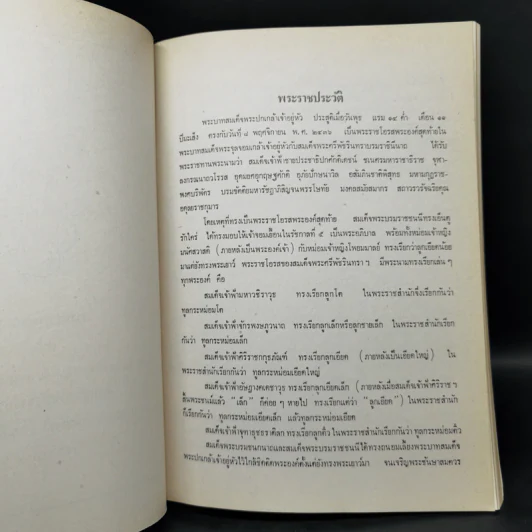 พระราชประวัติ
พระบาทสมเด็จพระปกเกล้าเจ้าอยู่หัว ประสูติเมื่อวันพุธ แรม ๑๔ ค่ำ เดือน ๑๑
ปีมะเส็ง ตรงกับวันที่ ๘ พฤศจิกายน พ.ศ. ๒๔๓๖ เป็นพระราชโอรสพระองค์สุดท้ายใน
พระบาทสมเด็จพระจุลจอมเกล้าเจ้าอยู่หัวกับสมเด็จพระศรีพัชรินทราบรมราชินีนาถ ได้รับ
พระราชทานพระนามว่า สมเด็จเจ้าฟ้าชายประชาธิปกศักดิเดชน์ ชเนศรมหาราชาธิราช จุฬา-
ลงกรณนาถวโรรส อุดมยศอุกฤษฐศักดิ์ อุภัยปักษนาวิล อสัมภินชาติพิสุทธ มหามกุฎราช-
พงศบริพัตร บรมขัตติยมหารัชฎาภิสิญจนพรรโษทัย มงคลสมัยสมากร สถาวรวรัจฉริยคุณ
อดุลยราชกุมาร
โดยเหตุที่ทรงเป็นพระราชโอรสพระองค์สุดท้าย สมเด็จพระบรมราชชนนีทรงเอ็นดู
รักใคร่ ได้ทรงมอบให้เจ้าจอมเยื้อนในรัชกาลที่ ๕ เป็นพระอภิบาล พร้อมทั้งหม่อมเจ้าหญิง
มนัศสวาสดิ์ (ภายหลังเป็นพระองค์เจ้า) กับหม่อมเจ้าหญิงโพยมมาลย์ ทรงเรียกว่าลูกเอียดน้อย
มาแต่ยังทรงพระเยาว์ พระราชโอรสของสมเด็จพระศรีพัชรินทรา ฯ มีพระนามทรงเรียกเล่น ๆ
ทุกพระองค์ คือ
สมเด็จเจ้าฟ้ามหาวชิราวุธ ทรงเรียกลูกโต ในพระราชสำนักจึงเรียกกันว่า
ทูลกระหม่อมโต
สมเด็จเจ้าฟ้าจักรพงษภูวนาถ ทรงเรียกลูกเล็กหรือลูกชายเล็ก ในพระราชสำนักเรียก
กันว่า ทูลกระหม่อมเล็ก
สมเด็จเจ้าฟ้าศิริราชกกุธภัณฑ์ ทรงเรียกลูกเอียด (ภายหลังเป็นเอียดใหญ่) ใน
พระราชสำนักเรียกกันว่า ทูลกระหม่อมเอียดใหญ่
สมเด็จเจ้าฟ้าอัษฎางคเดชาวุธ ทรงเรียกลูกเอียดเล็ก (ภายหลังเมื่อสมเด็จเจ้าฟ้าศิริราช ฯ
สิ้นพระชนม์แล้ว "เล็ก" ก็ค่อย ๆ หายไป ทรงเรียกแต่ว่า "ลูกเอียด") ในพระราชสำนัก
ก็เรียกกันว่า ทูลกระหม่อมเอียดเล็ก แล้วทูลกระหม่อมเอียด
สมเด็จเจ้าฟ้าจุฑาธุชธราดิลก ทรงเรียกลูกติ๋ว ในพระราชสำนักเรียกกันว่า ทูลกระหม่อมติ๋ว
สมเด็จพระบรมชนกนาถและสมเด็จพระบรมราชชนนีได้ทรงถนอมเลี้ยงพระบาทสมเด็จ
พระปกเกล้าเจ้าอยู่หัวไว้ใกล้ชิดติดพระองค์ตั้งแต่ยังทรงพระเยาว์มา จนเจริญพระชันษาสมควร